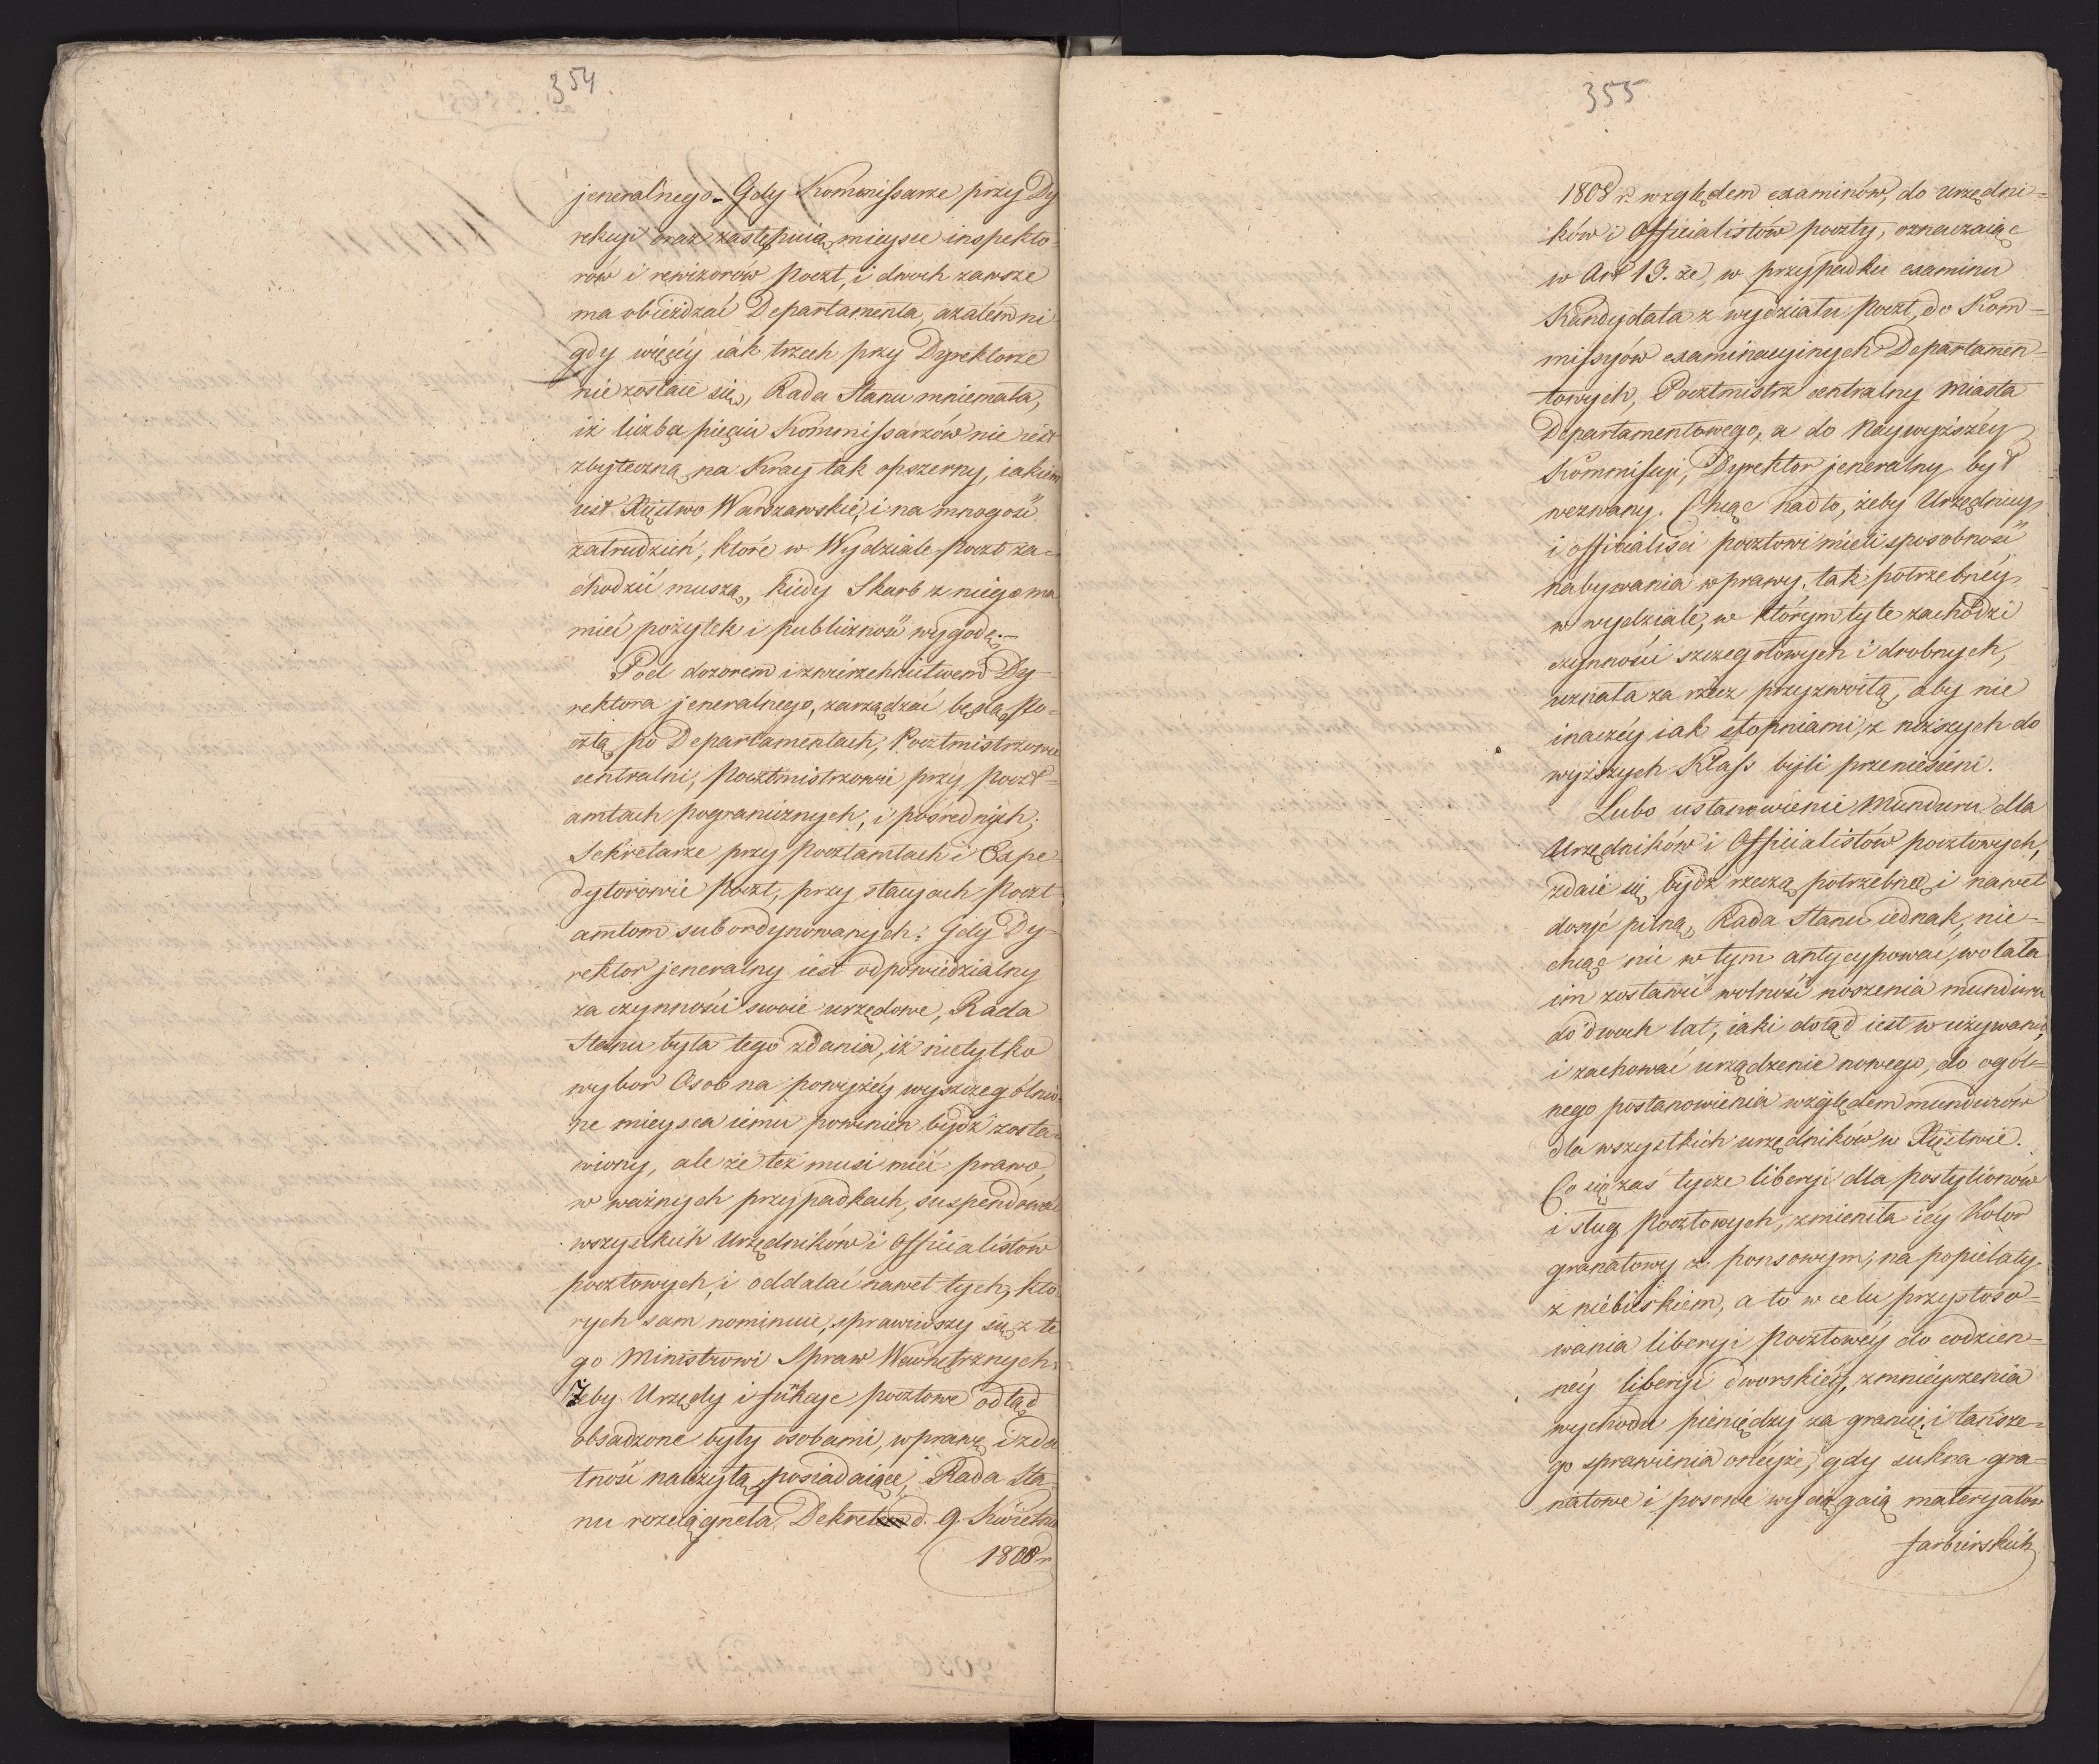 354
jeneralnego. Gdy Kommissarze przy Dy
rekcyi oraz zastępuią mieysce inspekto-
rów i rewizorów Poczt, i dwoch zawsze
ma obieżdzać Departamenta, azatém ni
gdy więcéy iak trzech przy Dyrektorze
nie zostaie się, Rada Stanu mniemała,
iż liczba pięciu Kommissarzów nie iest
zbyteczną na Kray tak opszerny, iakiem
iest Xięstwo Warszawskie, i na mnogość
zatrudzień, które w Wydziale Poczt za-
chodzić muszą, kiedy Skarb z niego ma
mieć pożytek i publiczność wygodę.—
Pod dozorem i zwierzchnictwem Dy-
rektora jeneralnego, zarządzać będą Po-
cztą po Departamentach, Pocztmistrzowie
centralni, Pocztmistrzowie przy Poczt-
amtach pogranicznych, i pośrednich;
Sekretarze przy Pocztamtach i Expe-
dytorowie Poczt, przy stacyach Poczt
amtom subordynowanych. Gdy Dy-
rektor jeneralny iest odpowiedzialny
za czynności swoie urzędowe, Rada
Stanu była tego zdania, iż nietylko
wybor Osob na powyżéy wyszczegolnio-
ne mieysca iemu powinien bydź zosta-
wiony, ale że też musi mieć prawo,
w ważnych przypadkach, suspendować
wszystkich Urzędników i Officialistów
pocztowych, i oddalać nawet tych, kto-
rych sam nominuie, sprawiwszy się z te
go Ministrowi Spraw Wewnętrznych.
Żeby Urzędy i funkcye pocztowe odtąd
obsadzone były osobami, wprawę i zda
tność należytą posiadaiące, Rada Sta-
nu rozciągneła Dekret d. 9. Kwietnia
1808 r
355
1808 r. względem examinów, do urzędni-
ków i Officialistów poczty, oznaczaiąc
w Art 13. że, w przypadku examinu
Kandydata z wydziału Poczt, do Kom-
missyów examinacyinych Departamen-
towych, Pocztmistrz centralny Miasta
Departamentowego, a do Naywyższéy
Kommissyi, Dyrektor jeneralny był
wezwany. Chcąc nadto, żeby Urzędnicy
i officialisci pocztowi mieli sposobność
nabywania wprawy, tak potrzebnéy
w wydziale, w którym tyle zachodzi
czynności szczegółowych i drobnych,
uznała za rzecz przyzwoitą, aby nie
inaczéy iak stopniami, z niższych do
wyższych Klass byli przeniesieni.
Lubo ustanowienie Munduru dla
Urzędników i Officialistów pocztowych,
zdaie się bydź rzeczą potrzebną i nawet
dosyć pilną, Rada Stanu iednak, nie-
chcąc nic w tym antycypować, wolała
im zostawić wolność noszenia munduru
do dwoch lat, iaki dotąd iest w używaniu,
i zachować urządzenie nowego, do ogól-
nego postanowienia względem mundurów
dla wszystkich urzędników w Xięstwie.
Co się zaś tycze liberyi dla postylionów
i sług Pocztowych, zmieniła iéy Kolor
granatowy z ponsowym, na popielaty
z niebieskiem, a to w celu przystoso-
wania liberyi Pocztowéy do codzien-
néy liberyi dworskiéy, zmnieyszenia
wychodu pieniędzy za granicę, i tańsze-
go sprawienia onéyże, gdy sukna gra-
natowe i posowe wyciągaią materyałów
farbierskich